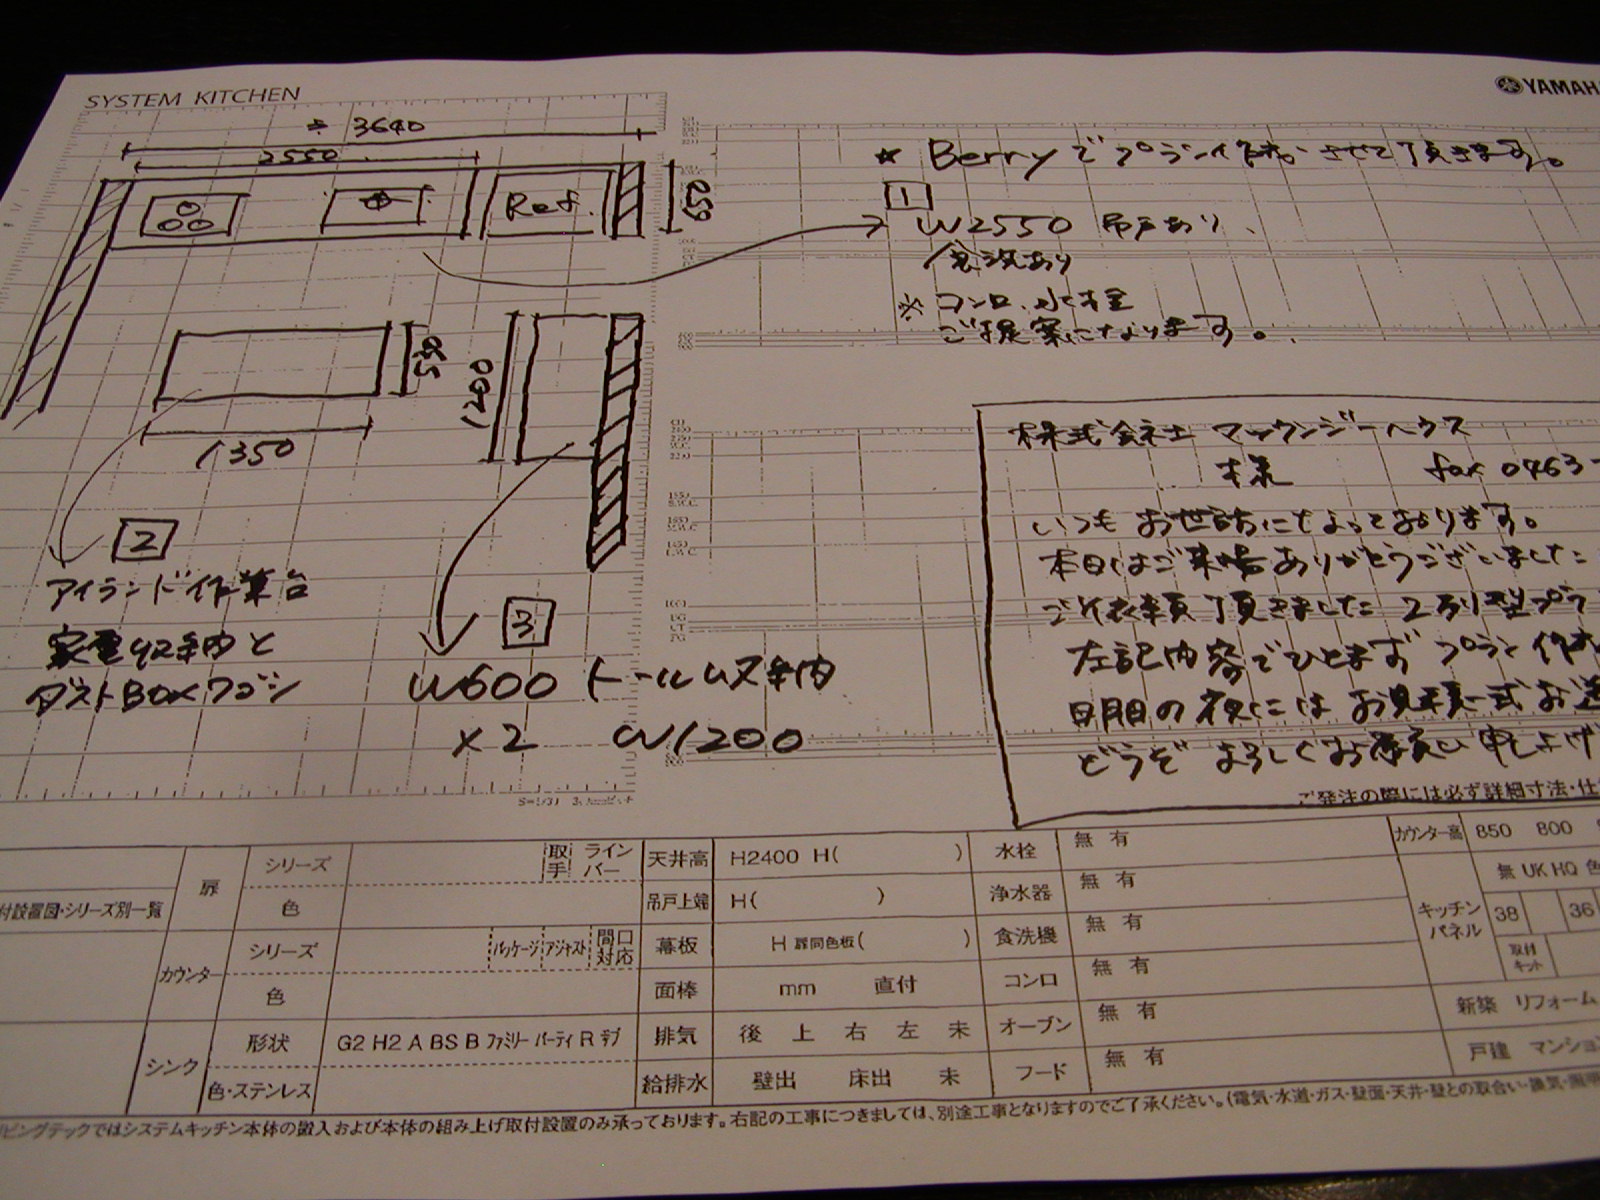 SYSTEM KITCHEN
YAMAHA
≒ 3640
2550
Ref.
650
★ Berryでプラン作成させて頂きます。
1
W2550 吊戸あり、
食洗あり
※ コンロ、水栓
ご提案になります。
1200
1350
2
アイランド作業台
家電収納と
ダストBOXワゴン
3
W600 トールムス収納
×2 W1200
株式会社 マウンジーハウス
様 fax 0463-
いつもお世話になっております。
本日はご来場ありがとうございました
ご依頼頂きました 2列型プラ
左記内容でひとまず プラン作成
明日の夜にはお見積一式お送
どうぞよろしくお願い申し上げ
ご発注の際には必ず詳細寸法・仕
付設置図・シリーズ別一覧
扉 シリーズ 取手 ライン バー
色
カウンター シリーズ パッケージ アジャスト 間口対応
色
シンク 形状 G2 H2 A BS B ファミリー パーティ R デブ
色・ステンレス
天井高 H2400 H( )
吊戸上端 H( )
幕板 H 扉同色板( )
面棒 mm 直付
排気 後 上 右 左 未
給排水 壁出 床出 未
水栓 無 有
浄水器 無 有
食洗機 無 有
コンロ 無 有
オーブン 無 有
フード 無 有
カウンター高 850 800
キッチンパネル 無 UK HQ 色
38 36
取付キット
新築 リフォーム
戸建 マンション
ビングテックではシステムキッチン本体の搬入および本体の組み上げ取付設置のみ承っております。右記の工事につきましては、別途工事となりますのでご了承ください。(電気・水道・ガス・壁面・天井・壁との取合い・換気・